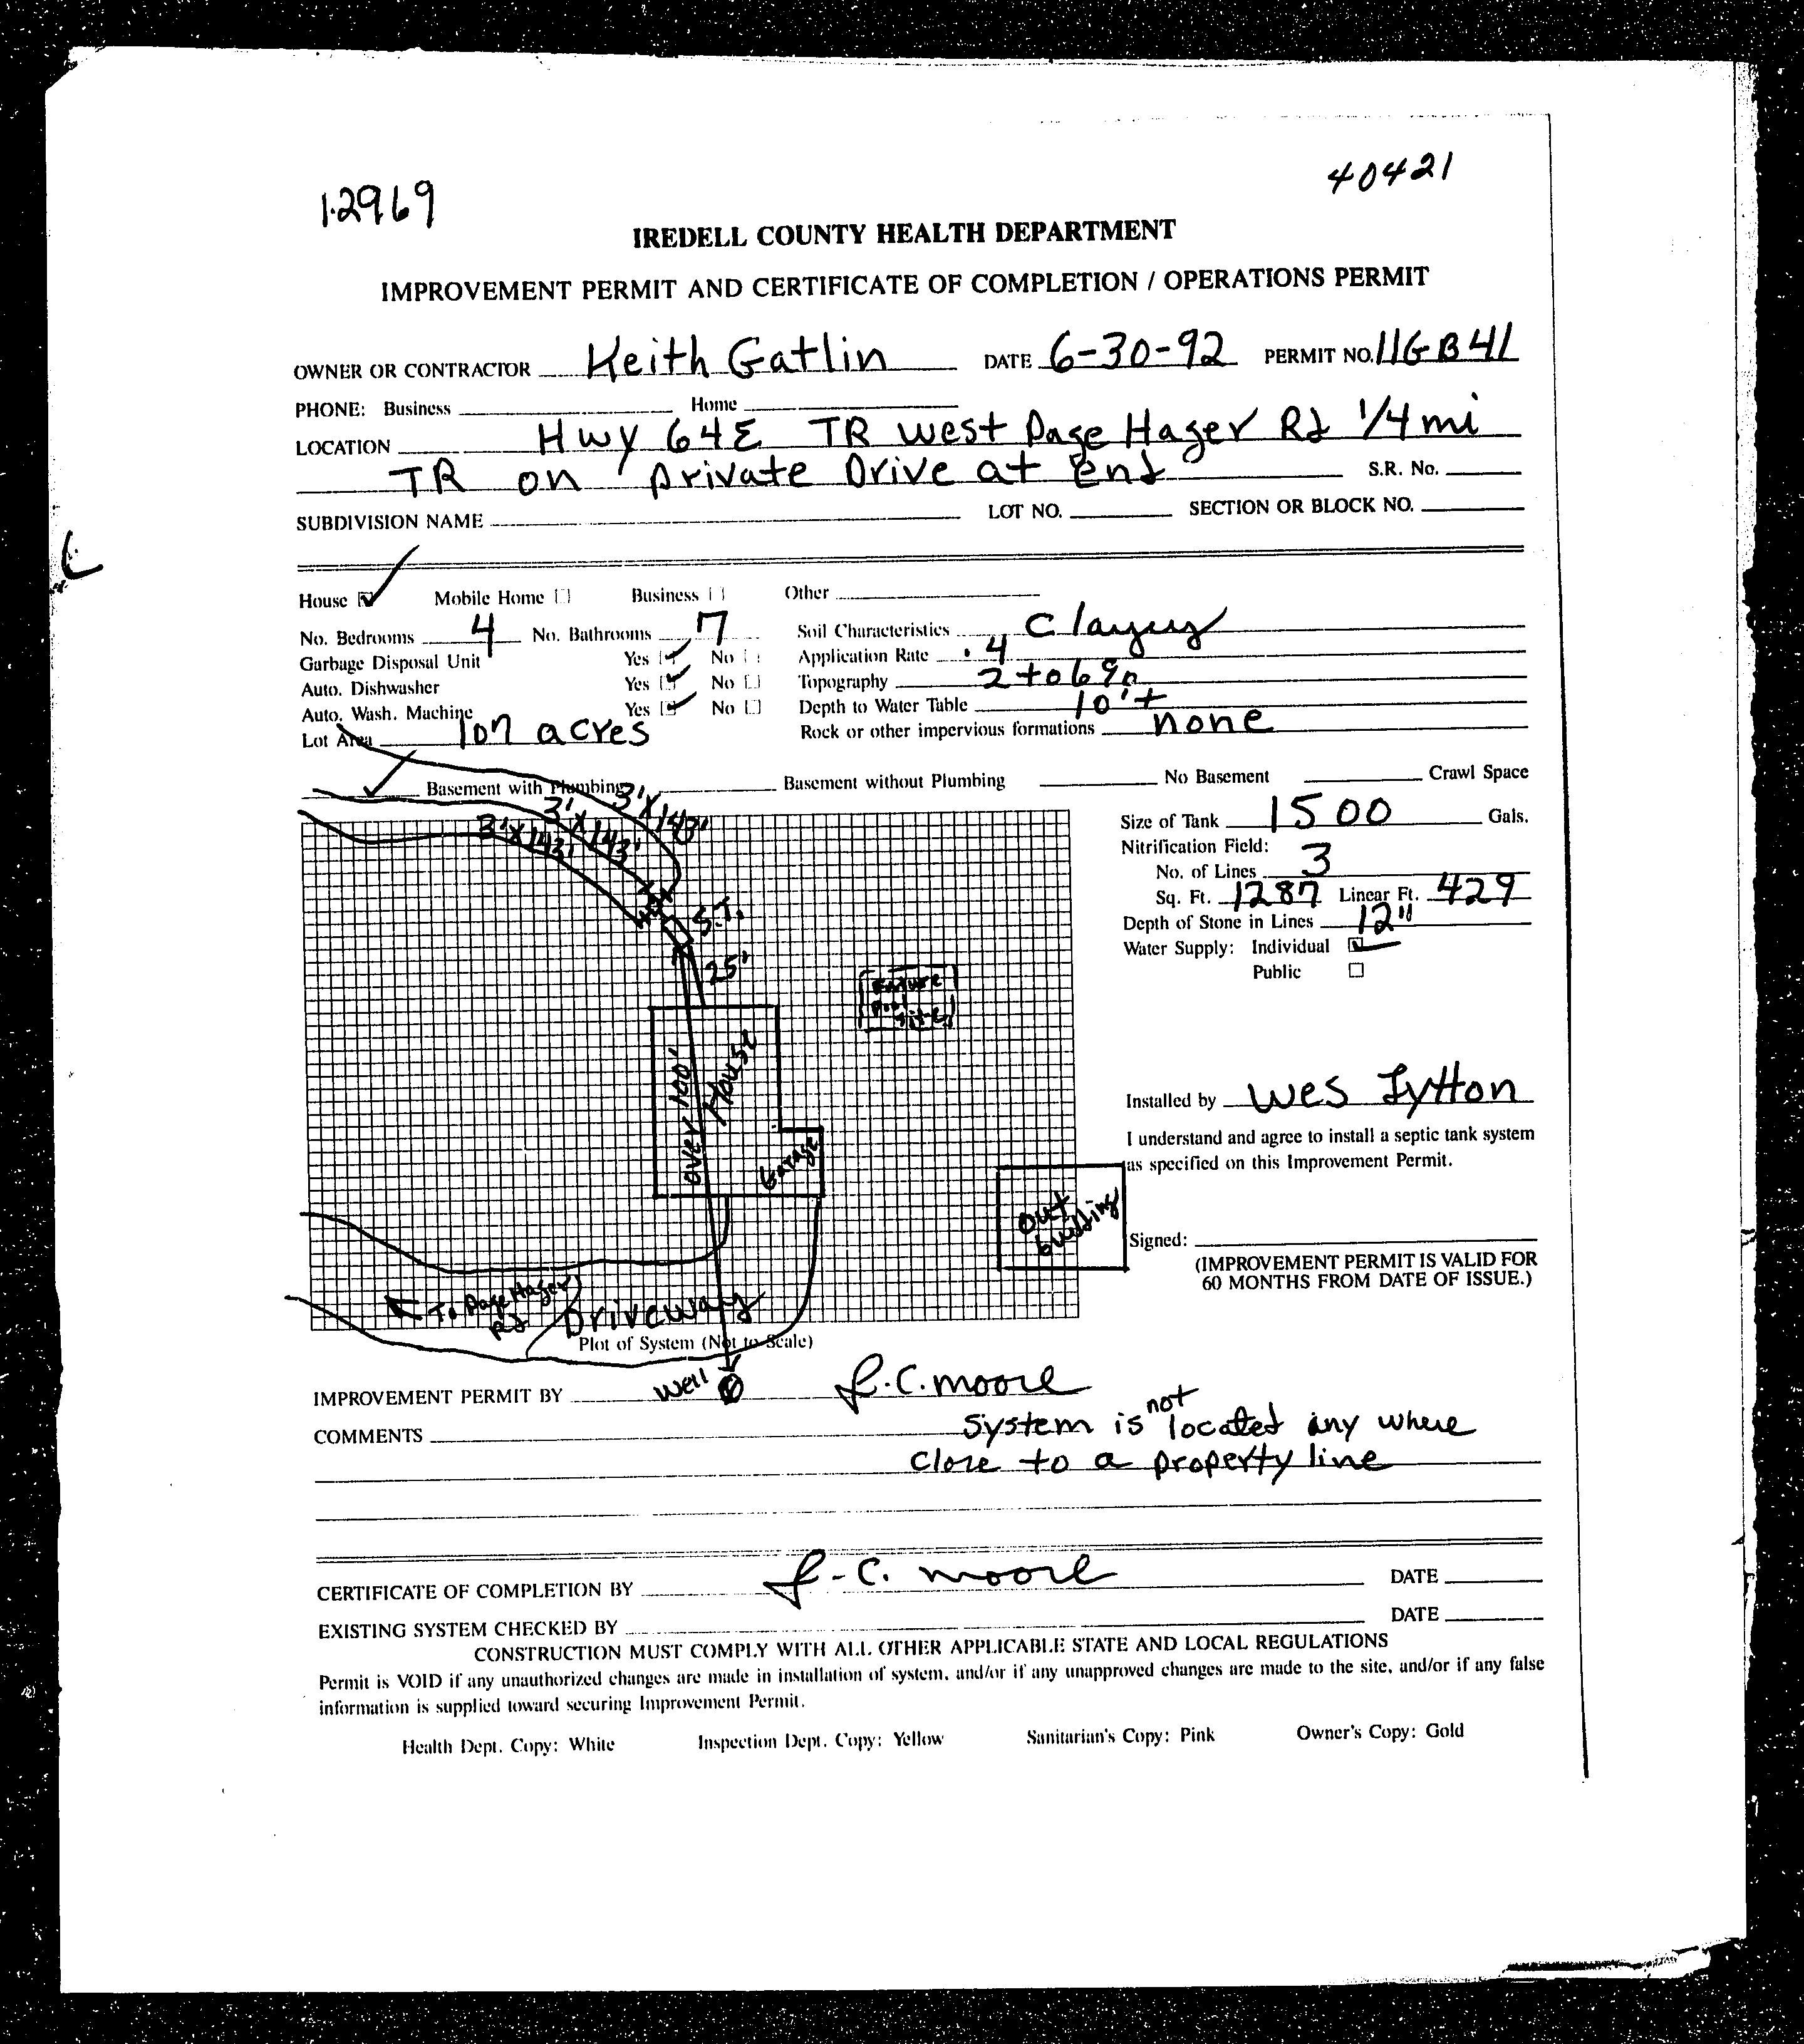 12969
40421
IREDELL COUNTY HEALTH DEPARTMENT
IMPROVEMENT PERMIT AND CERTIFICATE OF COMPLETION / OPERATIONS PERMIT
OWNER OR CONTRACTOR Keith Gatlin DATE 6-30-92 PERMIT NO. 11G-B41
PHONE: Business Home
LOCATION Hwy 64E TR west Page Hager Rd 1/4 mi
TR on private Drive at End S.R. No.
SUBDIVISION NAME LOT NO. SECTION OR BLOCK NO.
House Mobile Home Business Other
No. Bedrooms 4 No. Bathrooms 7 Soil Characteristics Clayey
Garbage Disposal Unit Yes No Application Rate .4
Auto. Dishwasher Yes No Topography 2 to 6%
Auto. Wash. Machine Yes No Depth to Water Table 10'+
Lot Area 107 acres Rock or other impervious formations none
Basement with Plumbing Basement without Plumbing No Basement Crawl Space
3'X143' 3'X143' 3'X143'
Size of Tank 1500 Gals.
Nitrification Field:
No. of Lines 3
Sq. Ft. 1287 Linear Ft. 429
Depth of Stone in Lines 12"
Water Supply: Individual
Public
S.T.
25'
Future
Pool
Site
over 100'
House
Garage
Installed by Wes Lytton
I understand and agree to install a septic tank system
as specified on this Improvement Permit.
out
building
Signed:
(IMPROVEMENT PERMIT IS VALID FOR
60 MONTHS FROM DATE OF ISSUE.)
To Page Hager
Rd
Driveway
Plot of System (Not to Scale)
IMPROVEMENT PERMIT BY Well J.C. Moore
COMMENTS System is not located any where
close to a property line
CERTIFICATE OF COMPLETION BY J.C. Moore DATE
EXISTING SYSTEM CHECKED BY DATE
CONSTRUCTION MUST COMPLY WITH ALL OTHER APPLICABLE STATE AND LOCAL REGULATIONS
Permit is VOID if any unauthorized changes are made in installation of system, and/or if any unapproved changes are made to the site, and/or if any false
information is supplied toward securing Improvement Permit.
Health Dept. Copy: White Inspection Dept. Copy: Yellow Sanitarian's Copy: Pink Owner's Copy: Gold